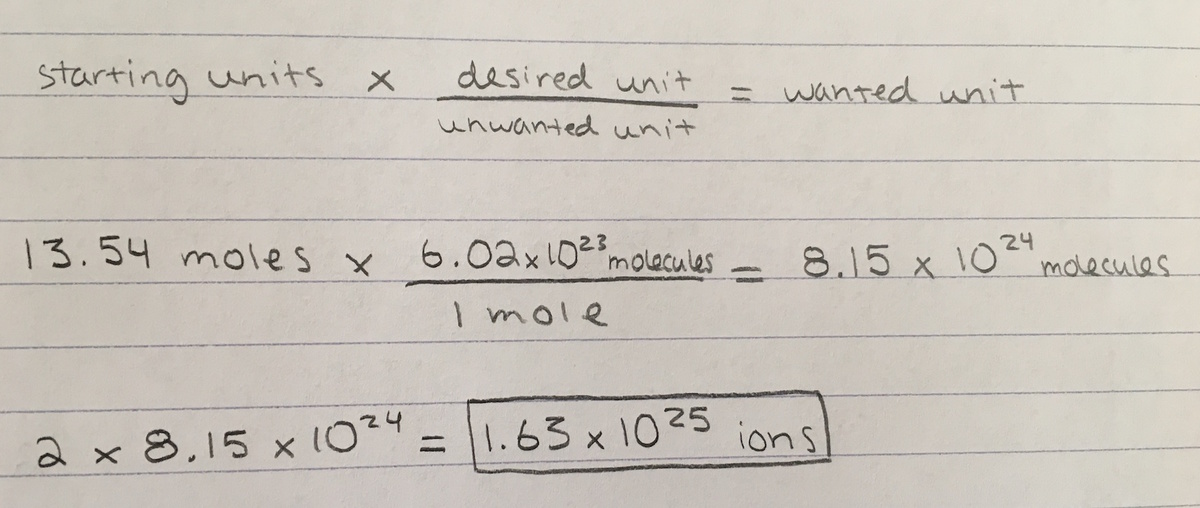 starting units x desired unit = wanted unit
unwanted unit
13.54 moles x 6.02x10²³ molecules = 8.15 x 10²⁴ molecules
1 mole
2 x 8.15 x 10²⁴ = 1.63 x 10²⁵ ions